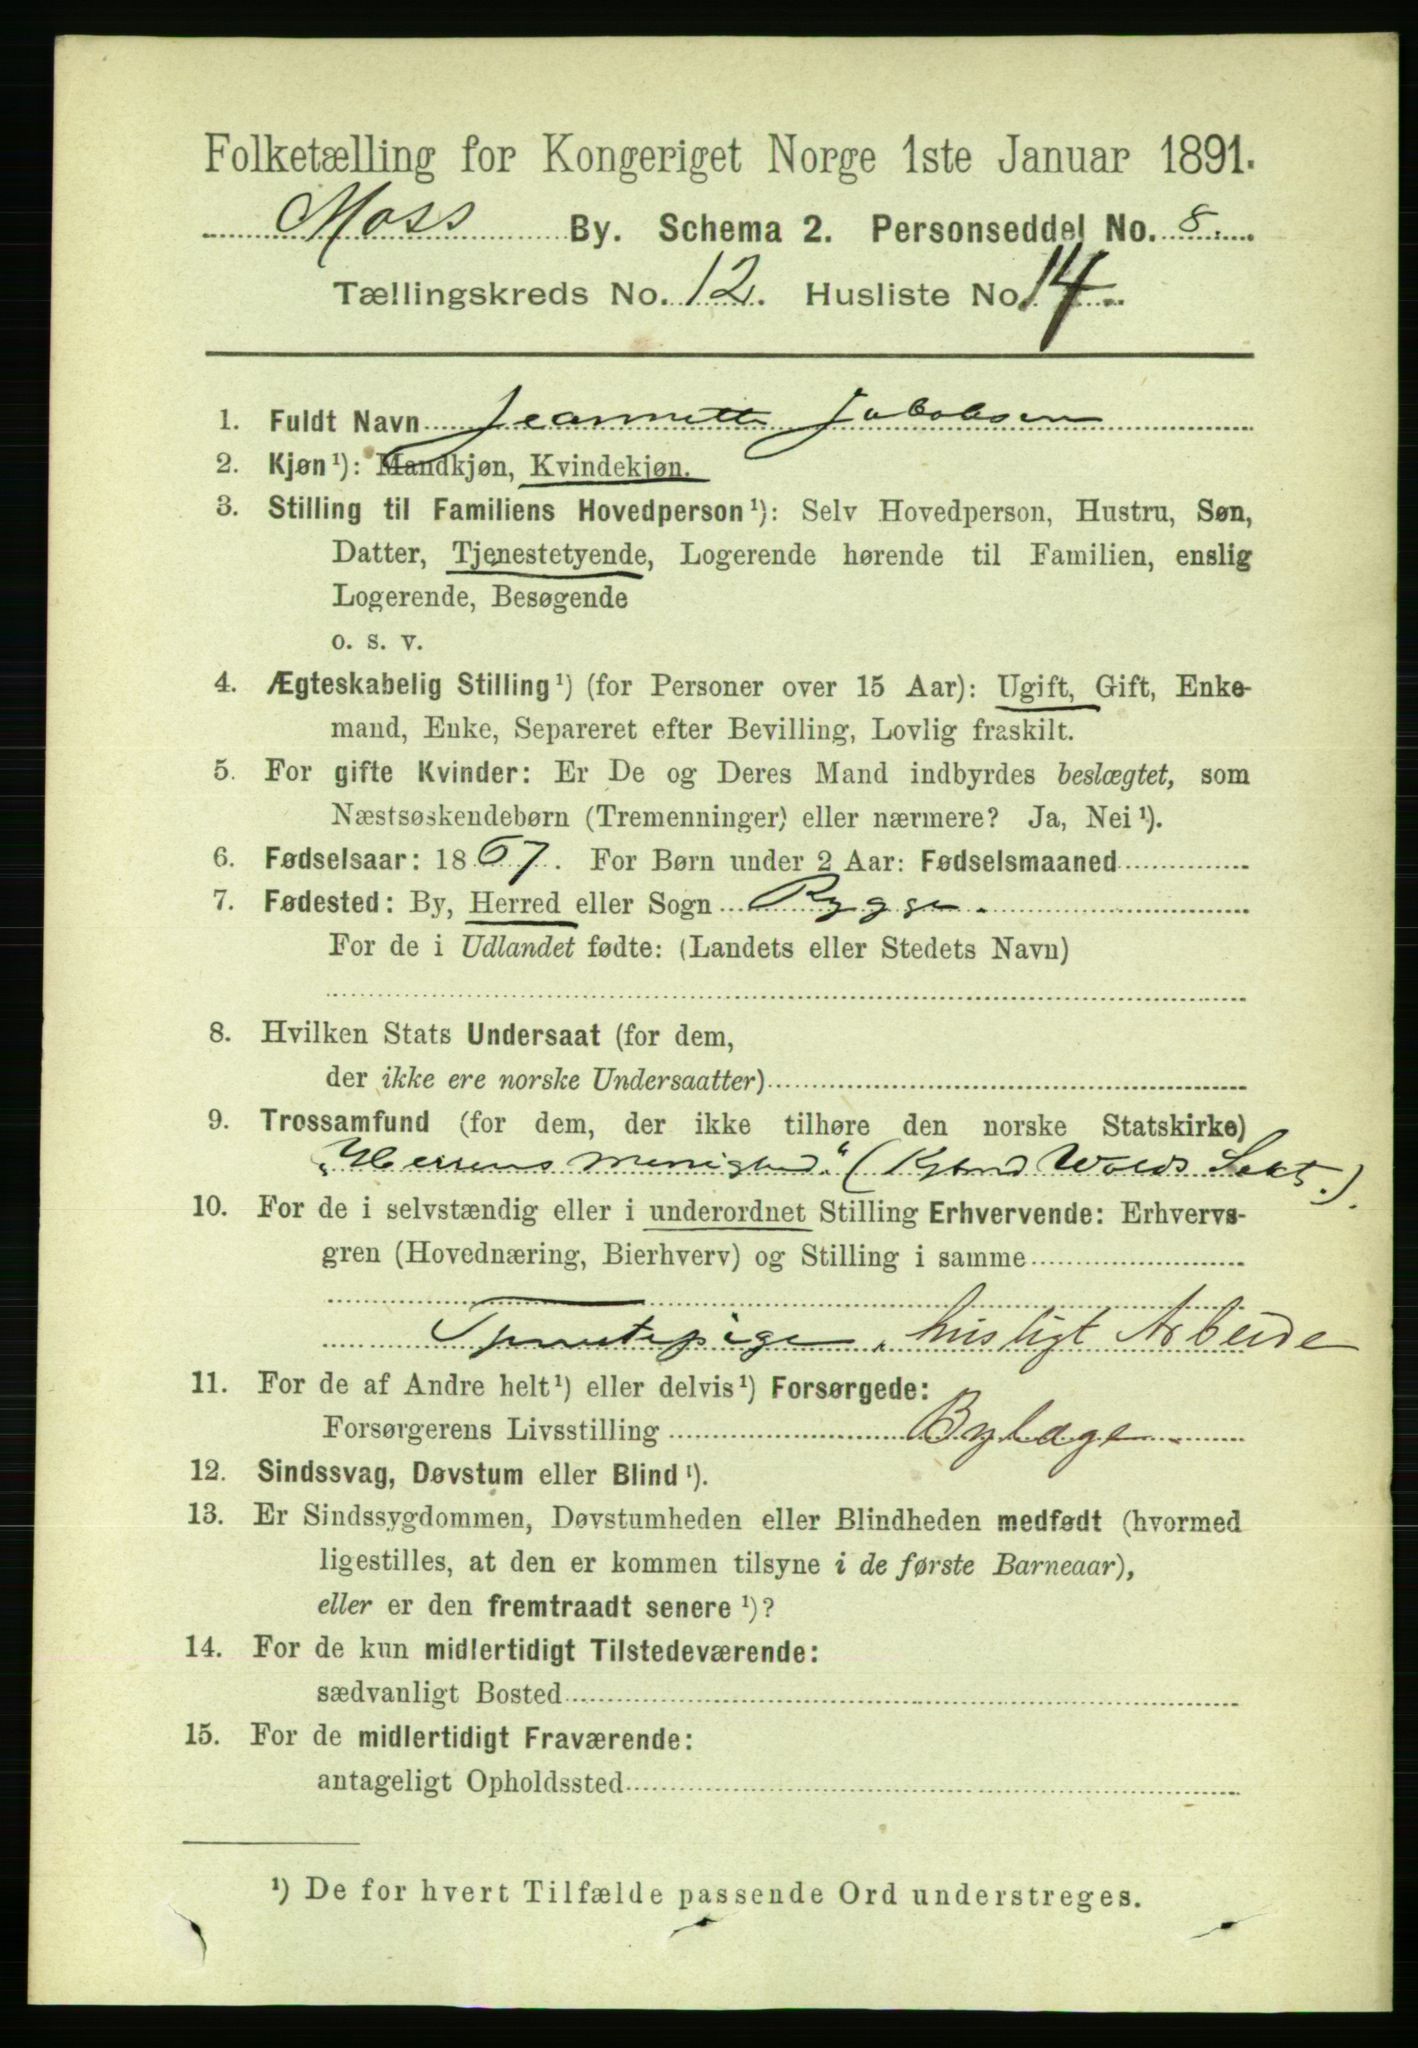 Folketælling for Kongeriget Norge 1ste Januar 1891.
Moss By. Schema 2. Personseddel No. 8.
Tællingskreds No. 12. Husliste No. 14
1. Fuldt Navn Jeannette Jakobsen
2. Kjøn¹): Mandkjøn, Kvindekjøn.
3. Stilling til Familiens Hovedperson¹): Selv Hovedperson, Hustru, Søn,
Datter, Tjenestetyende, Logerende hørende til Familien, enslig
Logerende, Besøgende
o. s. v.
4. Ægteskabelig Stilling¹) (for Personer over 15 Aar): Ugift, Gift, Enke-
mand, Enke, Separeret efter Bevilling, Lovlig fraskilt.
5. For gifte Kvinder: Er De og Deres Mand indbyrdes beslægtet, som
Næstsøskendebørn (Tremenninger) eller nærmere? Ja, Nei¹).
6. Fødselsaar: 1867. For Børn under 2 Aar: Fødselsmaaned
7. Fødested: By, Herred eller Sogn Rygge.
For de i Udlandet fødte: (Landets eller Stedets Navn)
8. Hvilken Stats Undersaat (for dem,
der ikke ere norske Undersaatter)
9. Trossamfund (for dem, der ikke tilhøre den norske Statskirke)
"Herrens Menighed." ( Wolds Sekt.).
10. For de i selvstændig eller i underordnet Stilling Erhvervende: Erhvervs-
gren (Hovednæring, Bierhverv) og Stilling i samme
Tjenestepige, husligt Arbeide
11. For de af Andre helt¹) eller delvis¹) Forsørgede:
Forsørgerens Livsstilling Bylæge
12. Sindssvag, Døvstum eller Blind¹).
13. Er Sindssygdommen, Døvstumheden eller Blindheden medfødt (hvormed
ligestilles, at den er kommen tilsyne i de første Barneaar),
eller er den fremtraadt senere¹)?
14. For de kun midlertidigt Tilstedeværende:
sædvanligt Bosted
15. For de midlertidigt Fraværende:
antageligt Opholdssted
¹) De for hvert Tilfælde passende Ord understreges.